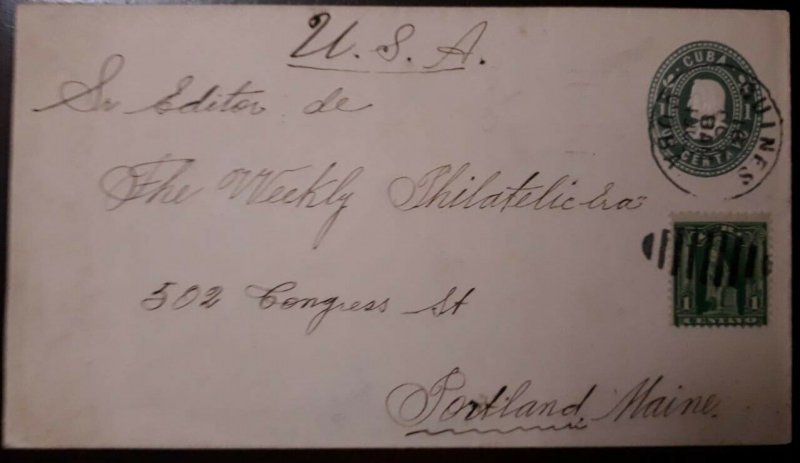 U. S. A.
Sr Editor de
The Weekly Philatelic Era
502 Congress St
Portland, Maine.
CUBA
1 1
CENTAVO
GUINES
1 1
CENTAVO